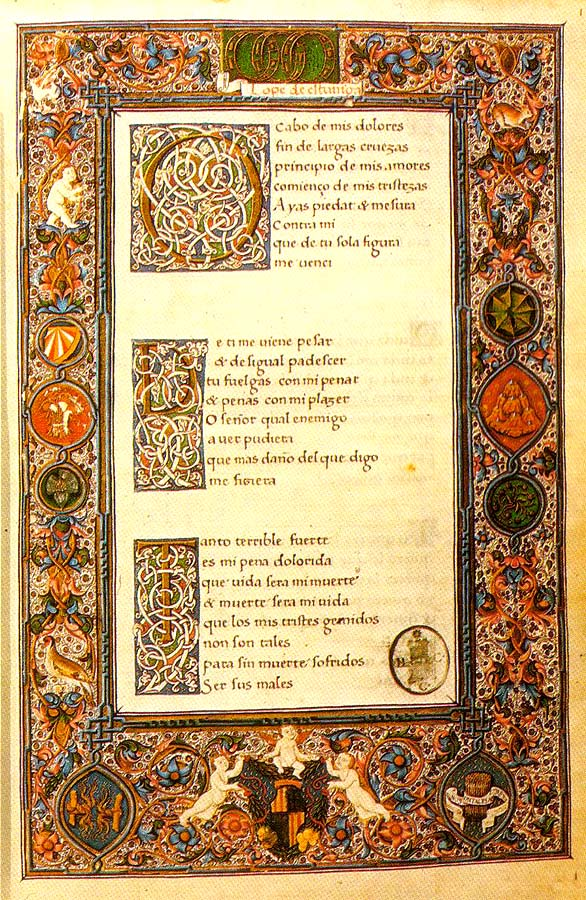 Lope de estuniga
O Cabo de mis dolores
fin de largas cruezas
principio de mis amores
comienço de mis tristezas
Ayas piedat & mesura
Contra mi
que de tu sola figura
me venci
De ti me uiene pesar
& desigual padesçer
tu fuelgas con mi penar
& penas con mi plazer
O señor qual enemigo
auer pudiera
que mas daño del que digo
me fiziera
Tanto terrible fuerte
es mi pena dolorida
que vida sera mi muerte
& muerte sera mi uida
que los mis tristes gemidos
non son tales
para sin muerte sofridos
Ser sus males